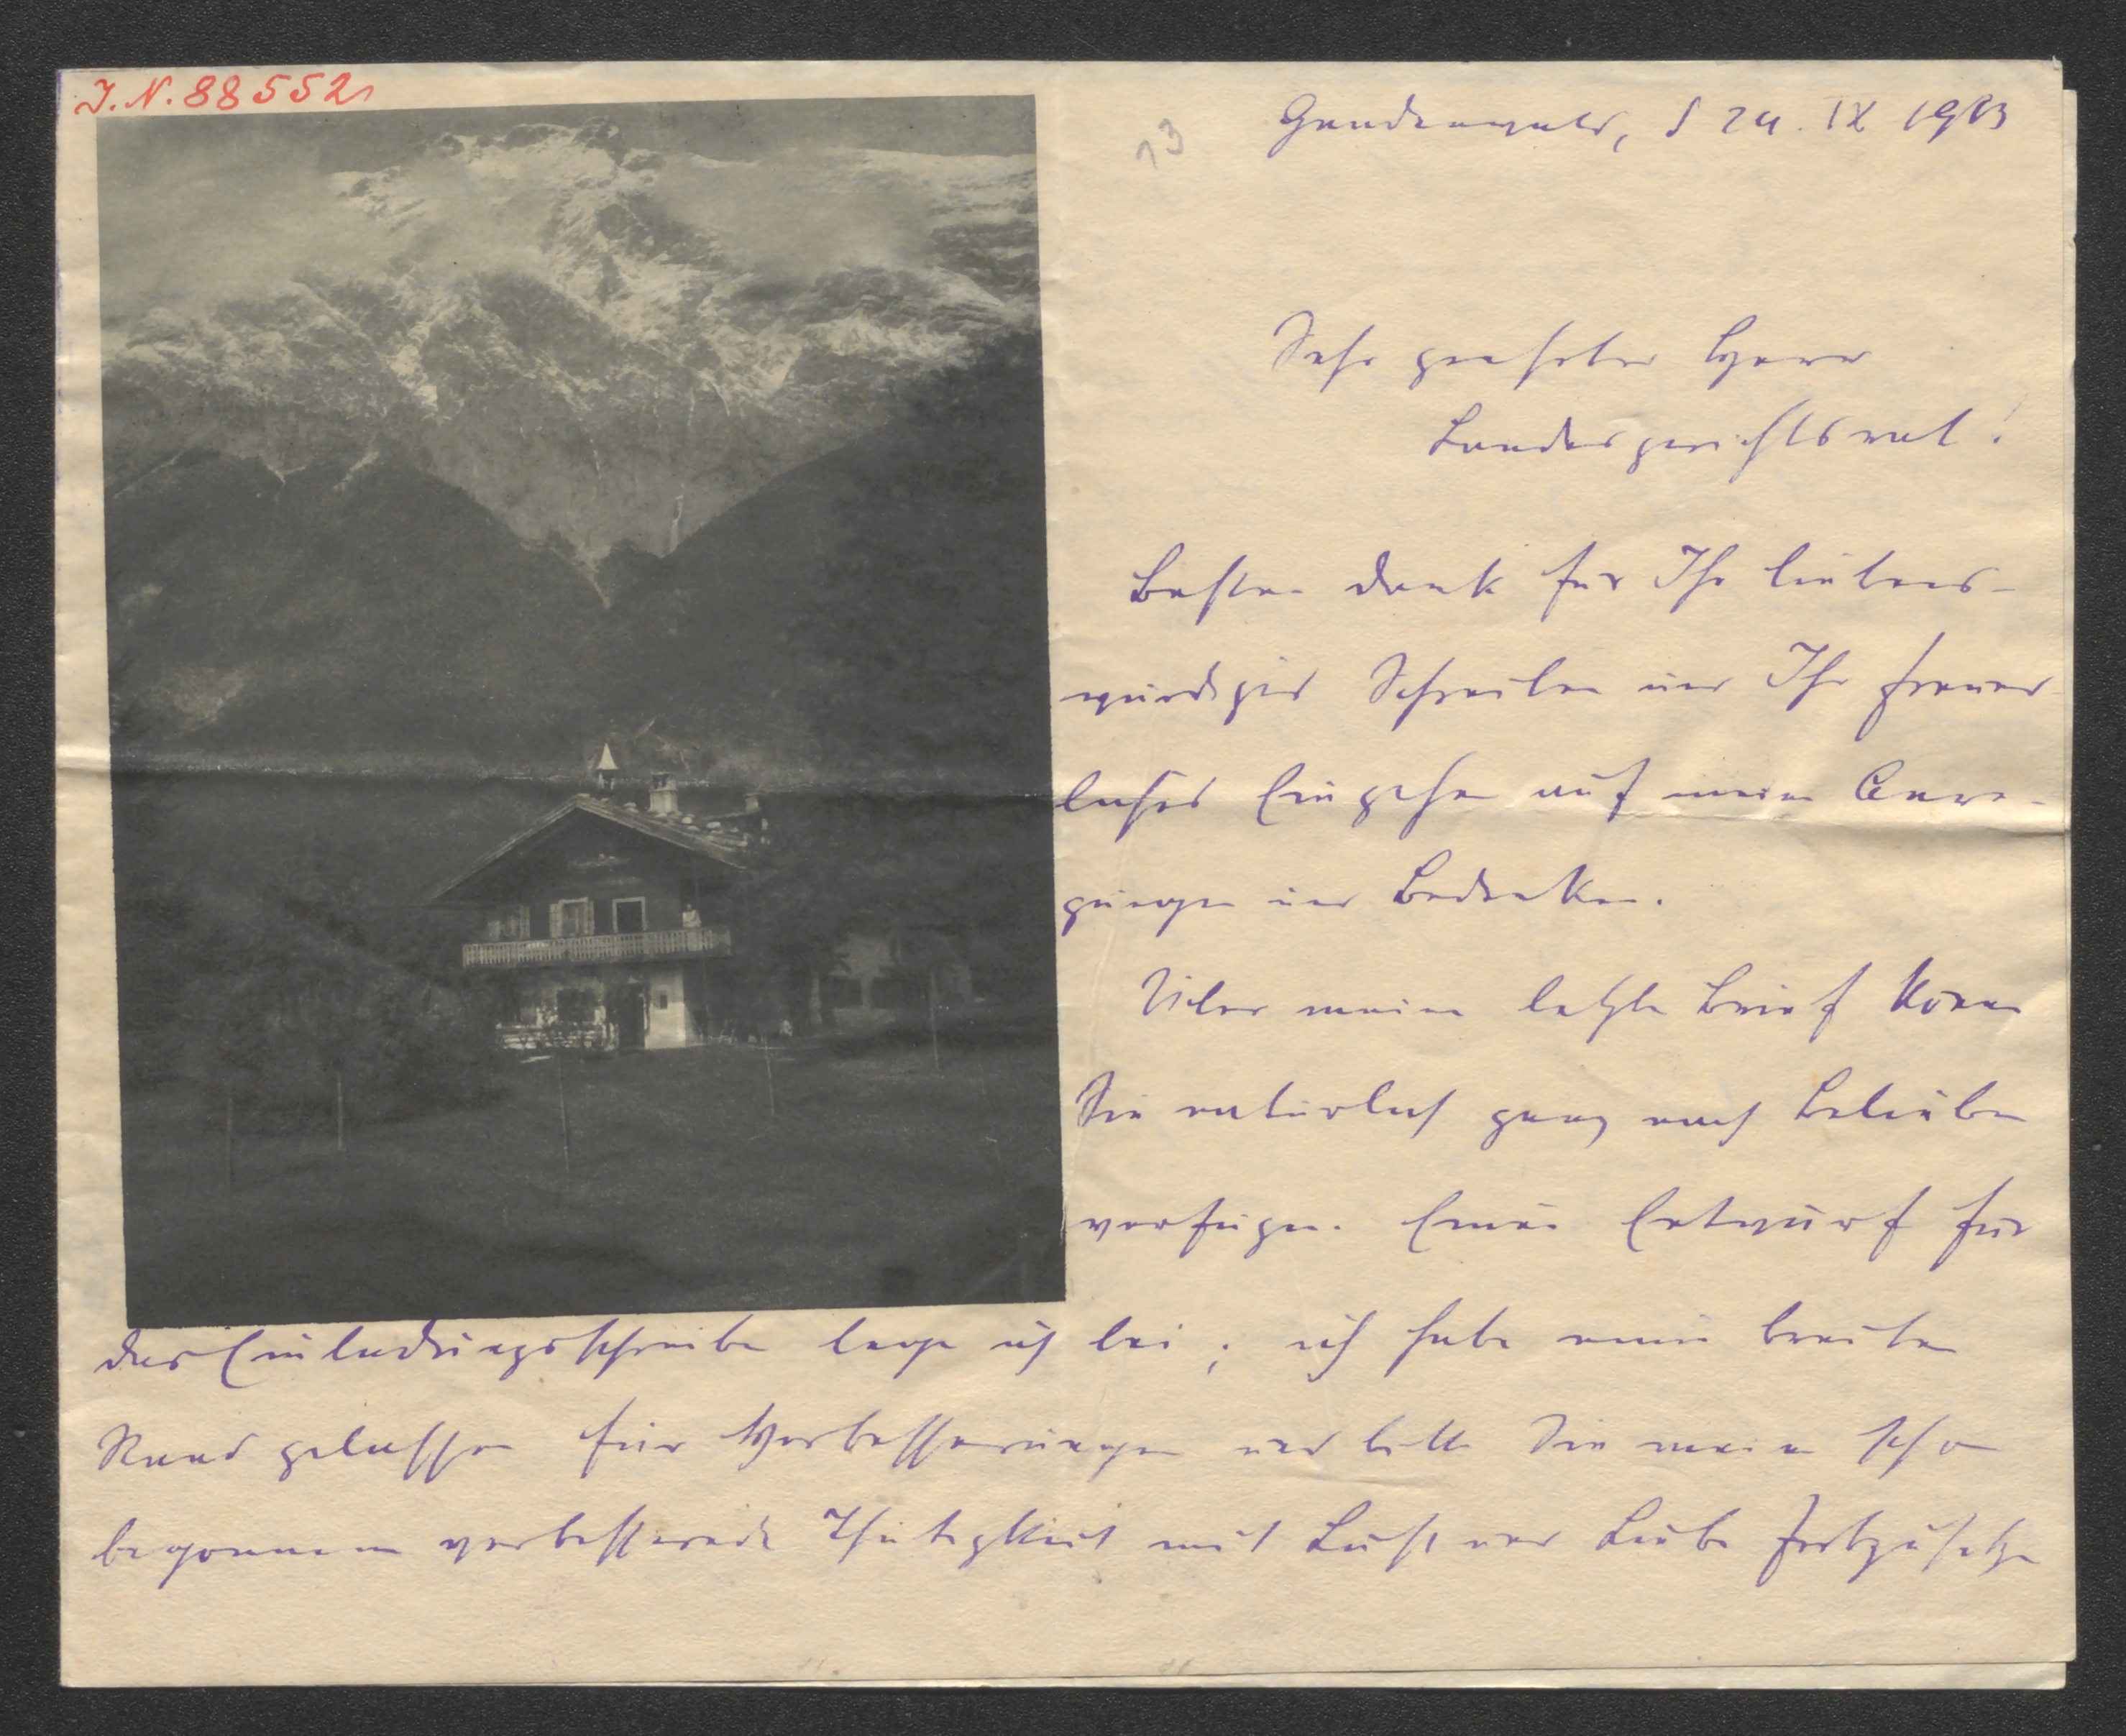 J. N. 88552
13
Gaudenwald, d 24. IX 1913
Sehr geehrter Herr
Landesgerichtsrat!
Besten Dank für Ihr liebens-
würdiges Schreiben und Ihr freund-
liches Eingehen auf meine Anre-
gungen und Bedenken.
Über meinen letzten Brief können
Sie natürlich ganz nach Belieben
verfügen. Einen Entwurf für
das Einladungsschreiben lege ich bei; ich habe einen breiten
Rand gelassen für Verbesserungen und bitte Sie meine schon
begonnene verbessernde Thätigkeit mit Lust und Liebe fortzusetzen